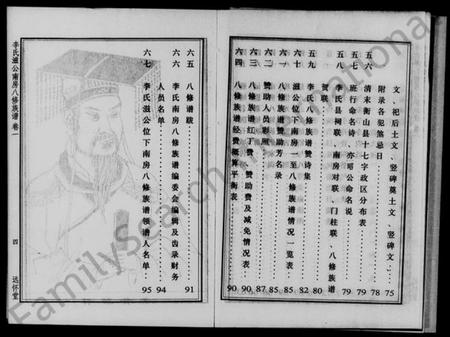 文、祀后土文、竖碑奠土文、竖碑文、…75
附录各犯煞忌日…78
五六 清末衡山县十七字政区分布表…79
五七 班行命名诗、亦昭公命名说…79
五八 李氏县祠联、南房对联、门柱联、八修族谱
贺联…80
五九 李氏南房八修族谱赞诗集…82
六十 滋公位下南房一至八修族谱情况一览表…85
赞助芳名录…85
赞助人员彩照…87
八修族谱红丁费、赞助费及减免情况表…90
六四 八修族谱经费概算平衡表…90
六五 八修谱跋…91
六六 李氏南房八修族谱编委会编辑及齿录财务
人员名单…94
六七 李氏滋公位下南房八修族谱领谱人名单…95
李氏滋公南房八修族谱卷一
四
远怀堂
FamilySearch International